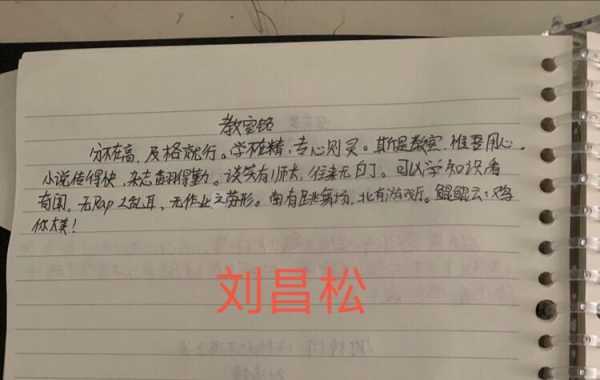 教室铭
分不在高,及格就行。学不在精,专心则灵。斯是教室,惟吾用心。
小说传得快,杂志翻得勤。谈笑有师大,往来无白丁。可以学知识看
奇闻,无Rap之乱耳,无作业之劳形。南有跳舞场,北有游戏厅。鲲鲲云:鸡
你太美!
刘昌松